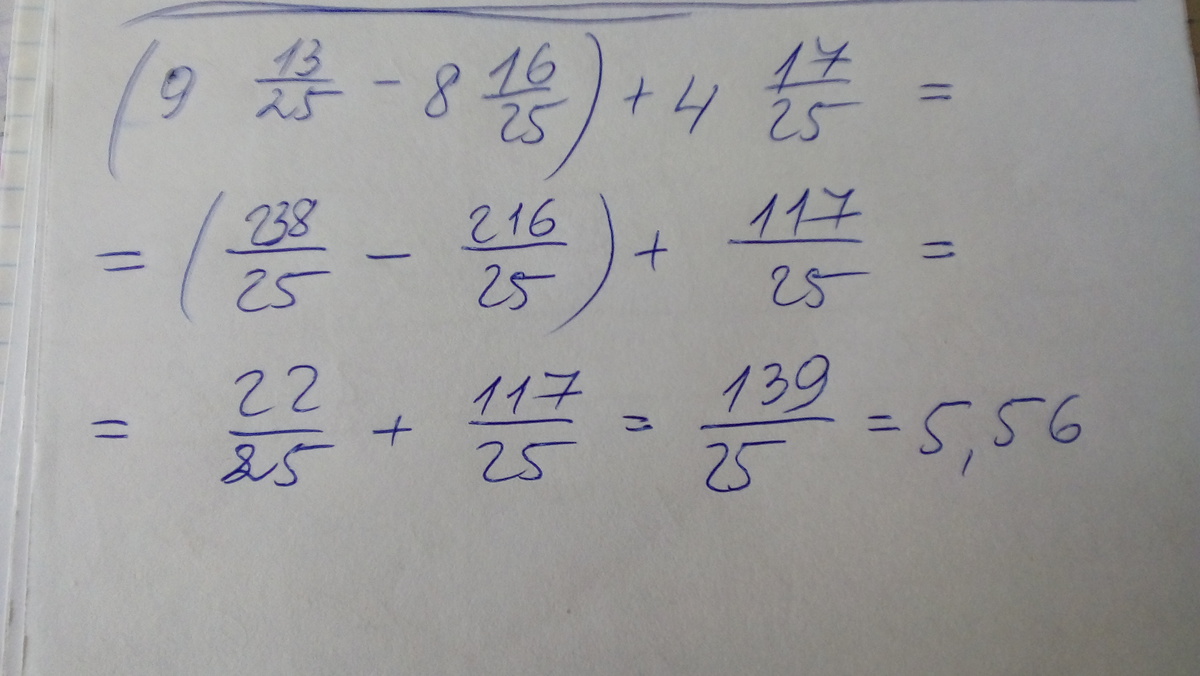 (9 13/25 - 8 16/25) + 4 17/25 =
= (238/25 - 216/25) + 117/25 =
= 22/25 + 117/25 = 139/25 = 5,56